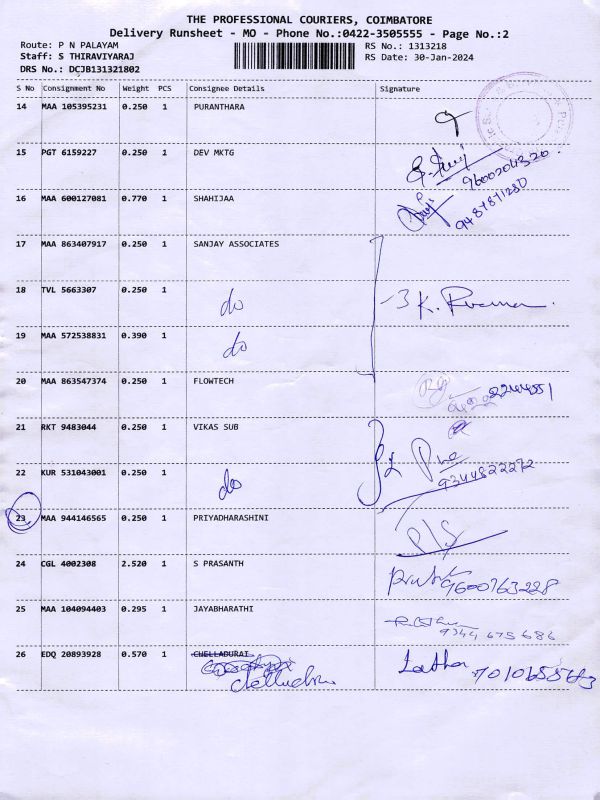 THE PROFESSIONAL COURIERS, COIMBATORE
Delivery Runsheet - MO - Phone No.:0422-3505555 - Page No.:2
Route: P N PALAYAM
RS No.: 1313218
Staff: S THIRAVIYARAJ
RS Date: 30-Jan-2024
DRS No.: DCJB131321802
S No Consignment No Weight PCS Consignee Details Signature
14 MAA 105395231 0.250 1 PURANTHARA
15 PGT 6159227 0.250 1 DEV MKTG
9600204320
16 MAA 600127081 0.770 1 SHAHIJAA
9487871280
17 MAA 863407917 0.250 1 SANJAY ASSOCIATES
18 TVL 5663307 0.250 1 do 3 K.
19 MAA 572538831 0.390 1 do
20 MAA 863547374 0.250 1 FLOWTECH
2244551
21 RKT 9483044 0.250 1 VIKAS SUB
22 KUR 531043001 0.250 1 do
9344822272
23 MAA 944146565 0.250 1 PRIYADHARASHINI
24 CGL 4002308 2.520 1 S PRASANTH
9600763228
25 MAA 104094403 0.295 1 JAYABHARATHI
9344 675 686
26 EDQ 20893928 0.570 1 CHELLADURAI Latha